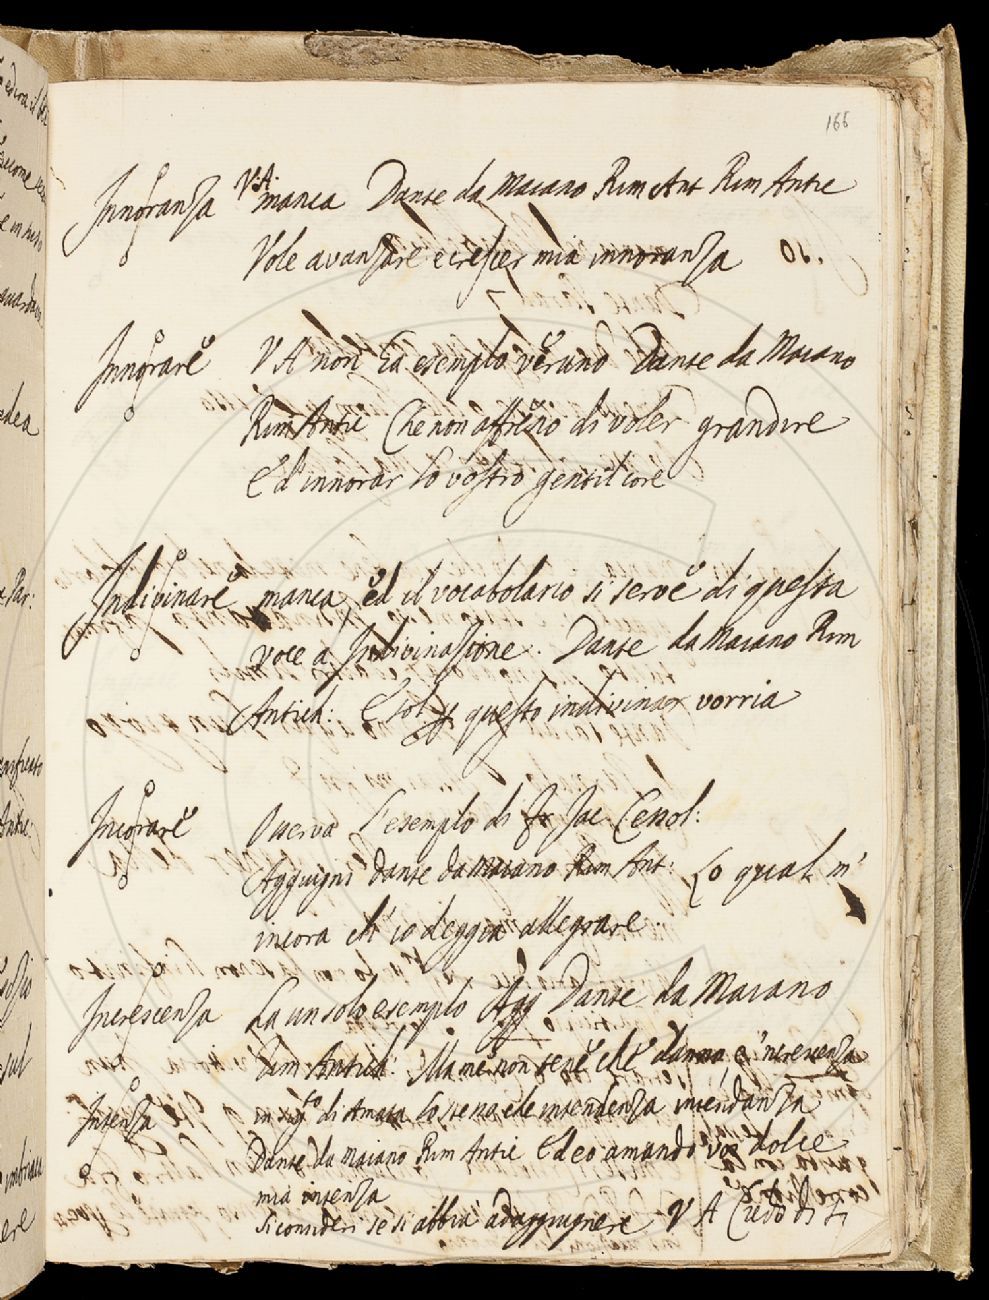 166
Innoranza V. A. manca Dante da Maiano Rim Ant Rim Antic
Vole avanzare e crescer mia innoranza 10.
Innorare V A non ha esempio veruno Dante da Maiano
Rim Antic Che non affreno di voler grandire
E d'innorar lo vostro gentil core
Indivinare manca, ed il vocabolario si serve di questa
voce a Indivinazione. Dante da Maiano Rim
Antich: E sol p questo indivinar vorria
Incorare Osserva l'esempio di Fr Jac Cessol:
Aggiugni Dante da Maiano Rim Ant: Lo qual m'
incora ch' io deggia allegrare
Increscenza Ha un solo esempio Agg Dante da Maiano
Rim Antich: Ma me non sene che danno, e 'ncrescenza
Intenza in sig.to di Amata lo stesso che intendenza intendanza
Dante da Maiano Rim Antic Ed eo amando voi dolce
mia intenza
Si consideri se si abbia ad aggiugnere V A Credo di